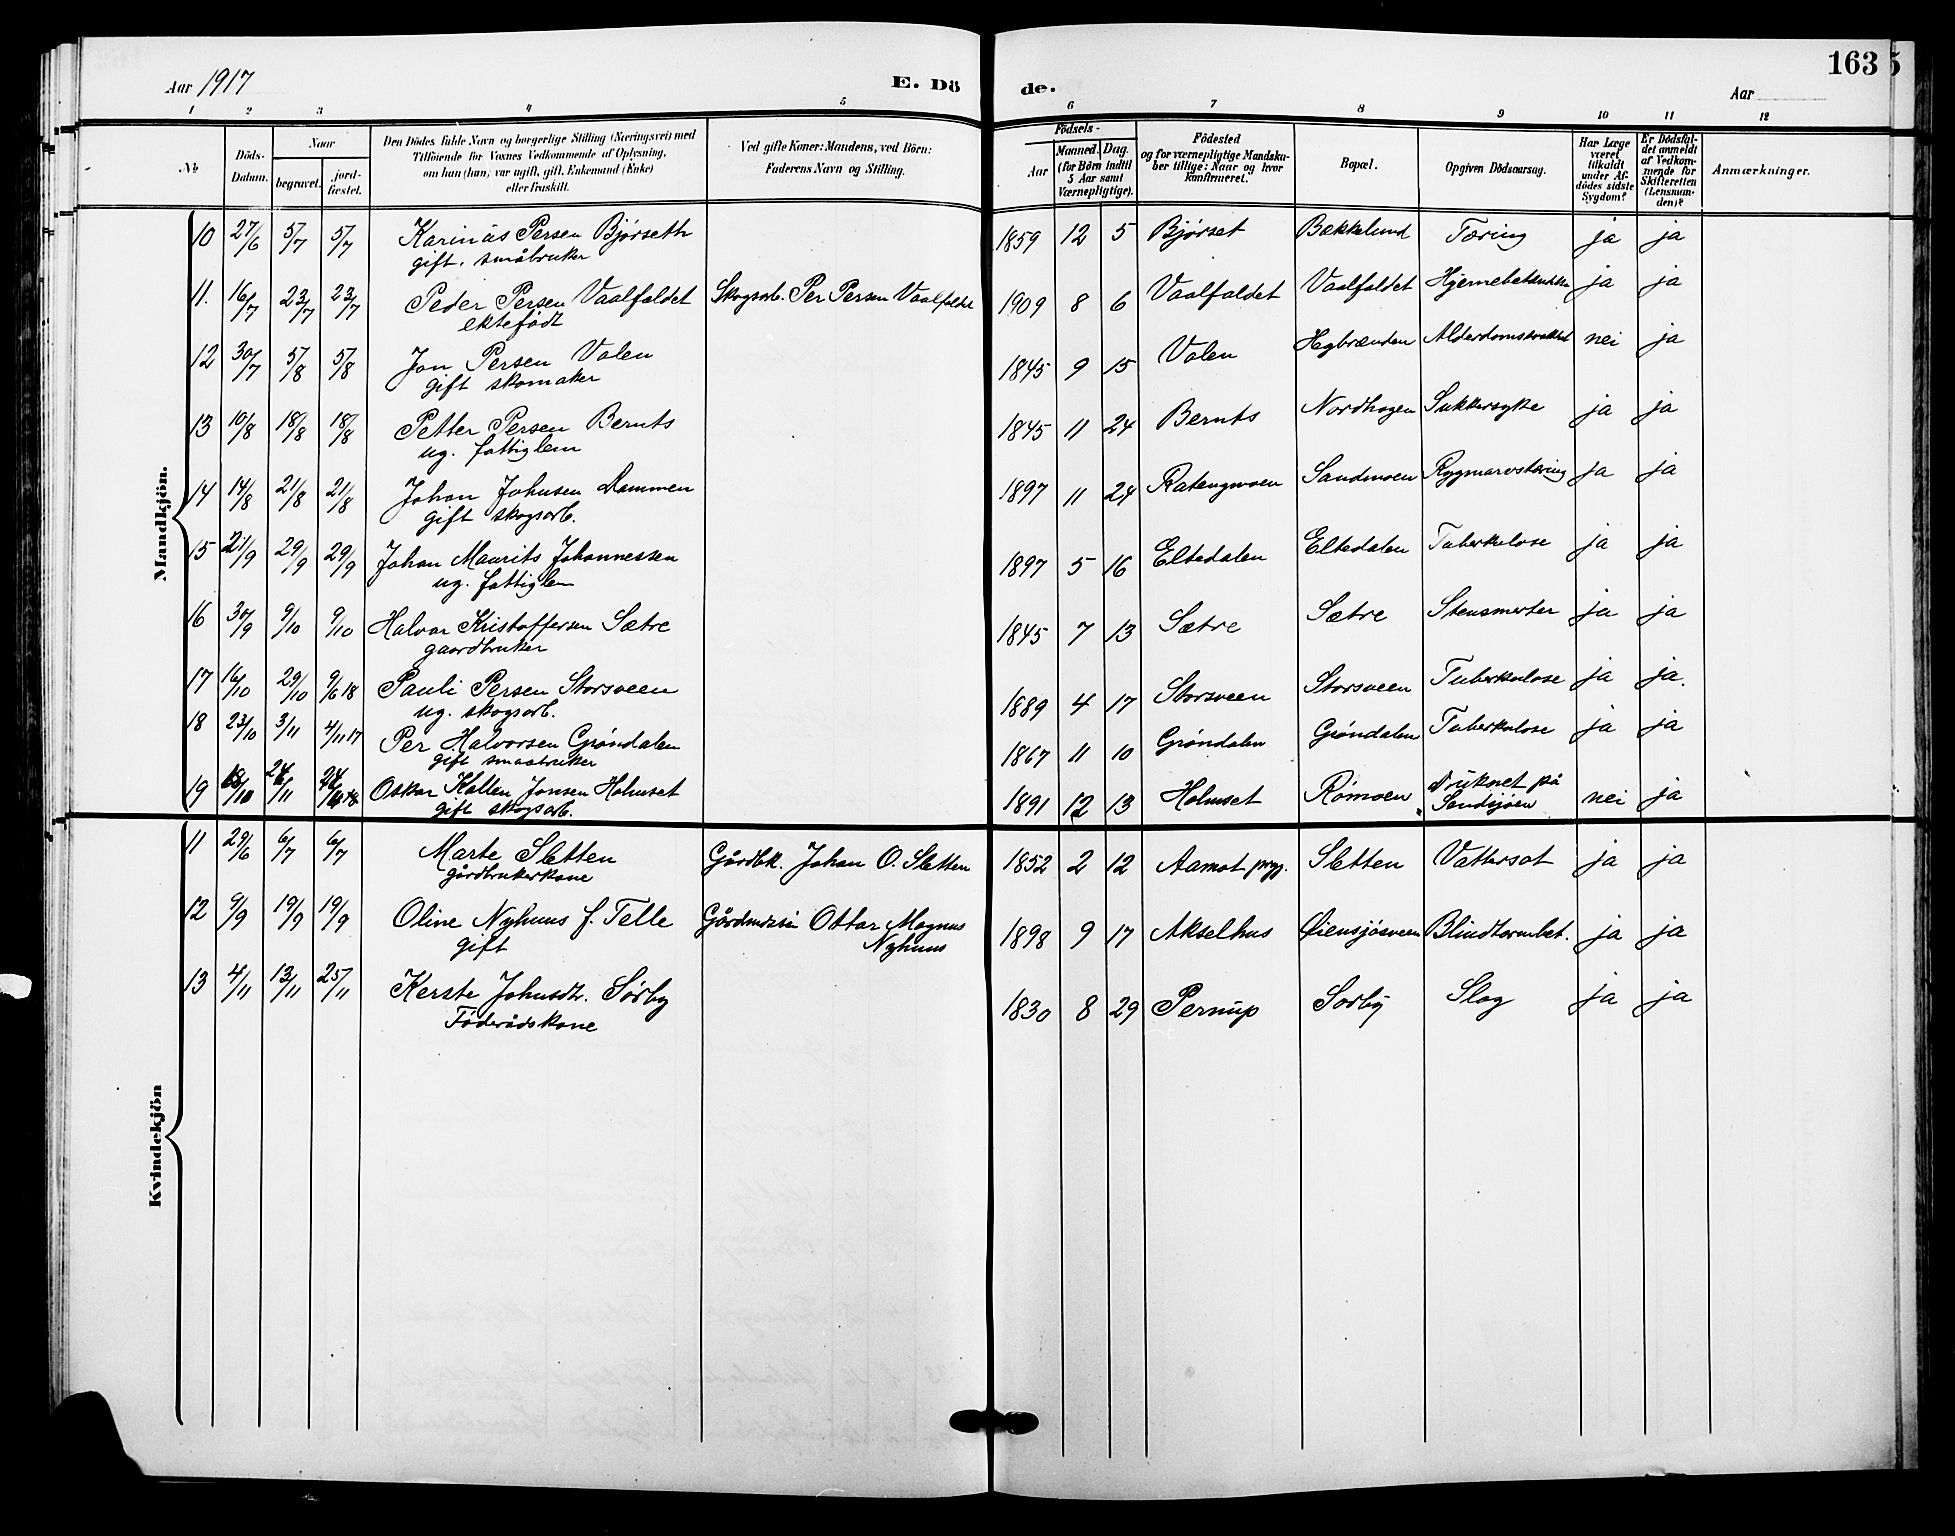 163
5
Aar 1917
E. Dö
de.
Aar
1 2 3 4 5 6 7 8 9 10 11 12
No
Döds-Datum.
Naar
begravet.
jord-fæstet.
Den Dödes fulde Navn og borgerlige Stilling (Næringsvei) med
Tilföiende for Voxnes Vedkommende af Oplysning,
om han (hun) var ugift, gift, Enkemand (Enke)
eller fraskilt.
Ved gifte Koner: Mandens, ved Börn:
Faderens Navn og Stilling.
Födsels-
Aar
Maaned. Dag.
(for Börn indtil
5 Aar samt
Værnepligtige).
Födested
og for værnepligtige Mandska-
ber tillige: Naar og hvor
konfirmeret.
Bopæl.
Opgiven Dödsaarsag.
Har Læge
været
tilkaldt
under Af-
dödes sidste
Sygdom?
Er Dödsfal-
det anmeldt
af Vedkom-
mende for
Skifteretten
(Lensman-
den)?
Anmærkninger.
Mandkjön.
10 27/6 5/7 5/7 Karinäs Persen Bjørseth 1859 12 5 Bjørset Bækkelund Tæring ja ja
gift. småbruker
11. 16/7 23/7 23/7 Peder Persen Vaalfaldet Skogsarb. Per Persen Vaalfaldet 1909 8 6 Vaalfaldet Vaalfaldet ja ja
ektefødt
12 30/7 5/8 5/8 Jon Persen Valen 1845 9 15 Valen Hegbrænden nei ja
gift skomaker
13 10/8 18/8 18/8 Petter Persen Bernts 1845 11 24 Bernts Nordhagen Sukkersyke ja ja
ug. fattiglem
14 14/8 21/8 21/8 Johan Johnsen Dammen 1897 11 24 Ratengmoen Sandmoen Rygmarvstæring ja ja
gift skogsarb.
15 21/9 29/9 29/9 Johan Maurits Johannessen 1897 5 16 Eltedalen Eltedalen Tuberkulose ja ja
ug. fattiglem
16 30/9 9/10 9/10 Halvor Kristoffersen Sætre 1845 7 13 Sætre Sætre Stensmerter ja ja
gaardbruker
17 16/10 29/10 9/6 18 Pauli Persen Storsveen 1889 4 17 Storsveen Storsveen Tuberkulose ja ja.
ug. skogsarb.
18 23/10 3/11 4/11 17 Per Halvorsen Grøndalen 1867 11 10 Grøndalen Grøndalen Tuberkulose ja ja
gift smaabruker
19 Oskar Kallen Jonsen Holmset 1891 12 13 Holmset Rømoen Druknet på
gift skogsarb. Sandsjøen nei ja
Kvindekjön
11 29/6 6/7 6/7 Marte Sletten Gårdbk. Johan O. Sletten 1852 2 12 Aamot prgj. Sletten Vattersot ja ja
gårdbrukerkone
12 9/9 19/9 19/9 Oline Nyhuus f. Telle Ottar Magnus 1898 9 17 Akselhus Øiensjøsveen Blindtarmbet. ja ja
gift Nyhuus
13 4/11 13/11 25/11 Kerste Johnsdtr. Sørby 1830 8 29 Pernup Sørby Slag ja ja
Föderådskone